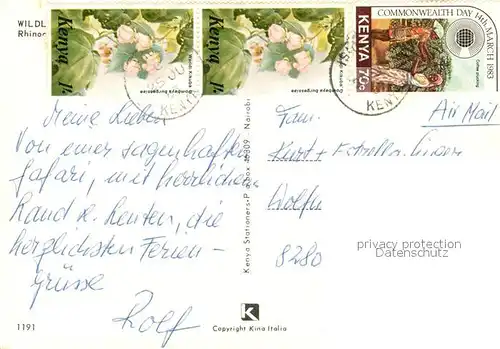 WILDL
Rhinoc
Kenya 1/-
Dombeya burgessiae
Kenya 1/-
Dombeya burgessiae
COMMONWEALTH DAY 14th MARCH 1983
KENYA 70c
Coffee picking
KENYA
KENYA
Meine Lieben
Von einer sagenhaften
Safari, mit herrlichen
Land u. Leuten, die
herzlichsten Ferien-
grüsse
Rolf
1191
Kenya Stationers-P.O. box 40309 - Nairobi
K
Copyright Kina Italia
Air Mail
Fam.
Kurt +
8280
privacy protection
Datenschutz